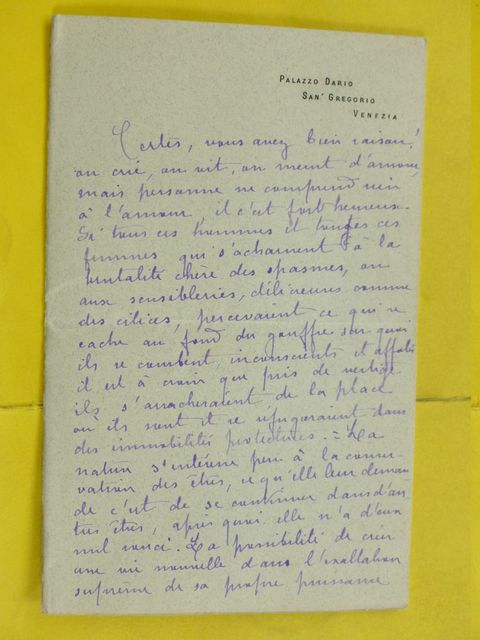 PALAZZO DARIO
SAN' GREGORIO
VENEZIA
Certes, vous avez bien raison!
on crie, on vit, on meurt d'amour,
mais personne ne comprend rien
à l'amour, il c'est fort heureux.
Si tous ces hommes et toutes ces
femmes qui s'acharnent à la
brutalité chère des spasmes, ou
aux sensibleries, délicieuses comme
des cilices, percevaient ce qui se
cache au fond du gouffre sur quoi
ils se courbent, inconscients et affolés
il est à craindre que pris de vertige
ils s'arracheraient de la place
où ils sont et se réfugieraient dans
des immobilités protectrices. - La
nature s'intéresse peu à la conser
vation des êtres, ce qu'elle leur deman
de c'est de se continuer dans d'au
tres êtres, après quoi elle n'a d'eux
nul souci. La possibilité de créer
une vie nouvelle dans l'exaltation
suprême de sa propre puissance